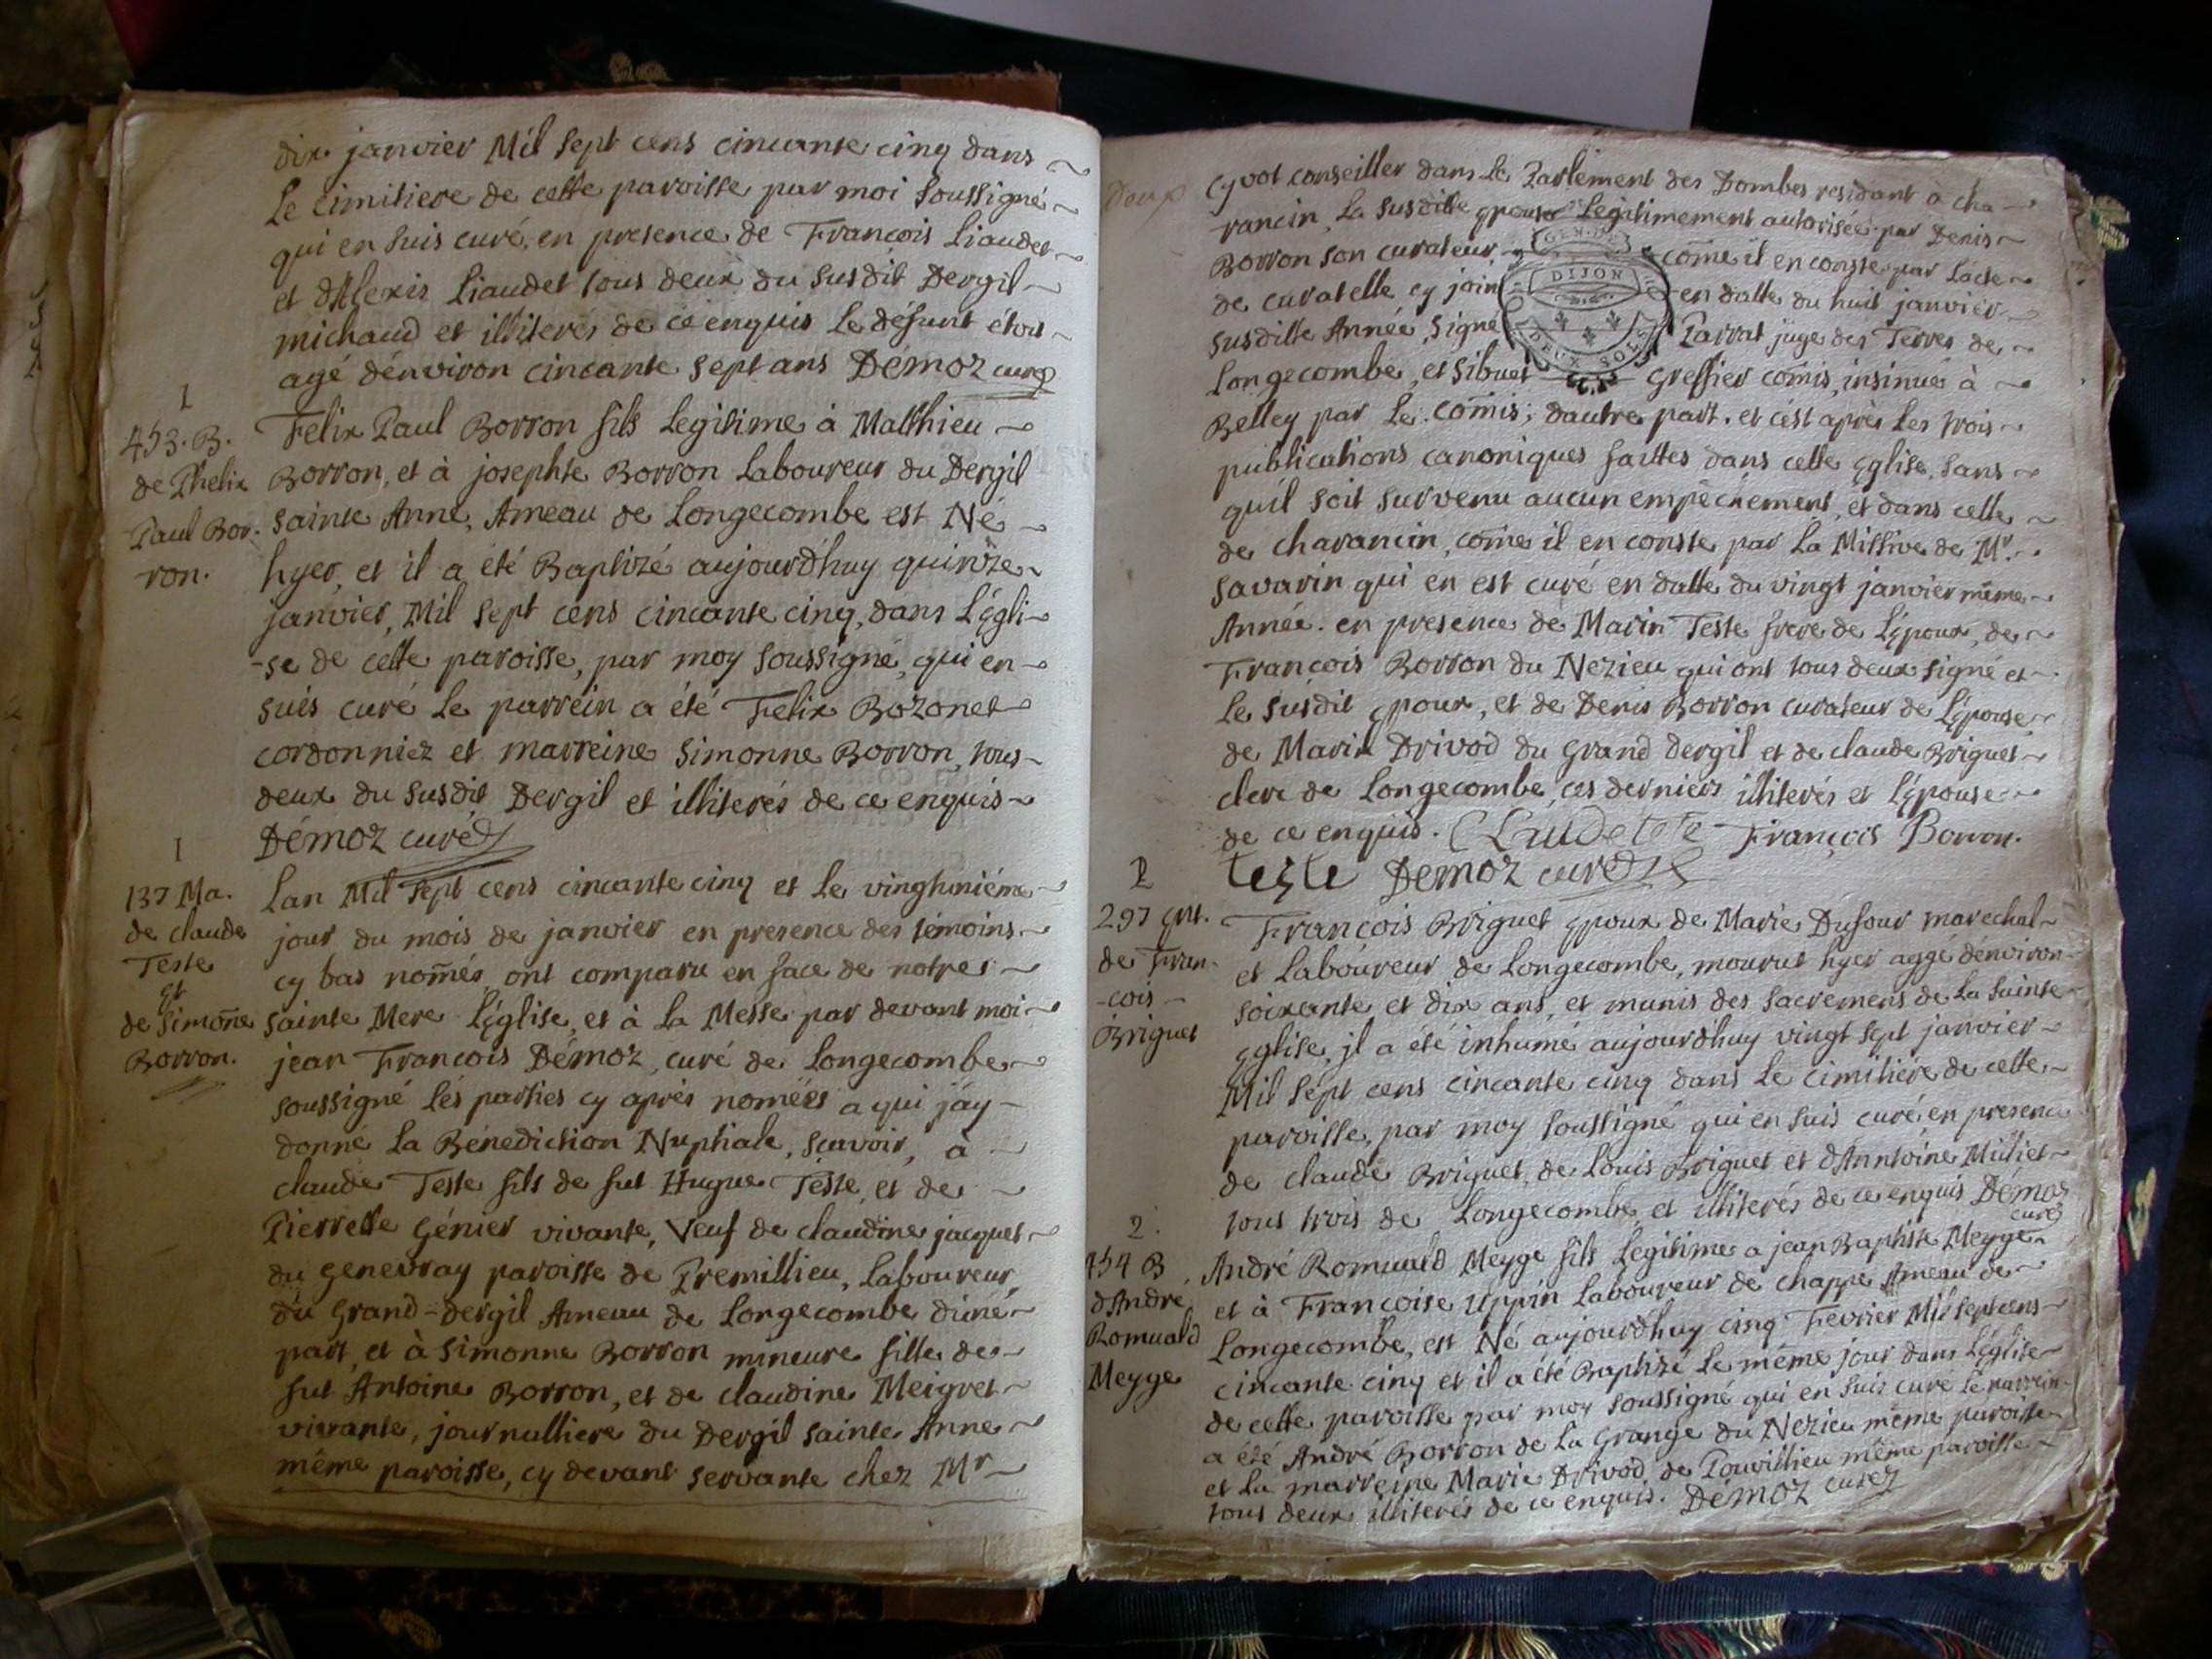 dix janvier Mil sept cens cincante cinq dans
Le cimitiere de cette paroisse par moi soussigné
qui en suis curé, en presence de François Liaudet
et d'Alexis Liaudet tous deux du susdit Dergil
michaud et illiterés de ce enquis Le défunt étoit
agé dénviron cincante sept ans Démoz curé
1
453. B.
de Phelix
Paul Bor-
ron.
Felix Paul Borron fils Legitime à Matthieu
Borron, et à josephte Borron Laboureur du Dergil
sainte Anne, Ameau de Longecombe est Né
hyer, et il a été Baptizé aujourd'huy quinze
janvier, Mil sept cens cincante cinq, dans L'égli-
-se de cette paroisse, par moy soussigné, qui en
suis curé Le parrein a été Felix Bozonet
cordonniez et marreine Simonne Borron, tous
deux du susdit Dergil et illiterés de ce enquis
Démoz curé
1
137 Ma.
de claude
Teste
et
de Simoñe
Borron.
Lan Mil sept cens cincante cinq et Le vingtuniéme
jour du mois de janvier en presence des témoins
cy bas nom̃és, ont comparu en face de notre
sainte Mere L'église, et à La Messe par devant moi
jean François Démoz, curé de Longecombe
soussigné les parties cy aprés nomées a qui j'ay
donné La Bénediction Nuptiale, sçavoir, à
claude Teste fils de fut Hugue Teste, et de
Pierrette Génier vivante, Veuf de claudine jacquet
du genevray paroisse de Premillieu, Laboureur
du Grand-dergil Ameau de Longecombe d'uné
part, et à Simonne Borron mineure fille de
fut Antoine Borron, et de claudine Meigret
vivante, journalliere du Dergil sainte Anne
même paroisse, cy devant servante chez Mr
cyvot conseiller dans Le Parlement des Dombes residant à cha-
rancin, La susditte epouse Legitimement autorisée par Denis
Borron son curateur, come il en conste par L'acte
de curatelle cy join en datte du huit janvier
susditte Année, signé Parrat juge des Terres de
Longecombe, et Sibuet Greffier comis, insinué à
Belley par Le comis; d'autre part. et c'est aprés Les trois
publications canoniques faittes dans cette église, sans
qu'il soit survenu aucun empêchement, et dans celle
de charancin, come il en conste par La Missive de Mr
savarin qui en est curé en datte du vingt janvier même
Année. en presence de Marin Teste frere de L'époux, de
François Borron du Nezieu qui ont tous deux signé et
Le susdit époux, et de Denis Borron curateur de L'épouse
de Marin Drivod du grand dergil et de claude Briguet
clerc de Longecombe, ces derniers illiterés et L'épouse
de ce enquis. Claude tete François Borron.
teste Démoz curé
2
297 ent.
de Fran-
-cois
Briguet
François Briguet époux de Marie Dufour marechal
et Laboureur de Longecombe, mourut hyer aggé dénviron
soixante et dix ans, et munis des sacremens de La sainte
église, jl a été inhumé aujourd'huy vingt sept janvier
Mil sept cens cincante cinq dans Le cimitiére de cette
paroisse, par moy soussigné qui en suis curé, en presence
de claude Briguet, de Louis Briguet et d'Anntoine Milliet
tous trois de Longecombe, et illiterés de ce enquis Démoz
curé
2.
454 B
d'André
Romuald
Meyge
André Romuald Meyge fils Legitime a jean Baptiste Meyge
et à Françoise Uppin Laboureur de chappe Ameau de
Longecombe, est Né aujourd'huy cinq Fevrier Mil sept cens
cincante cinq et il a été Baptizé Le même jour dans L'église
de cette paroisse par moy soussigné qui en suis curé Le parrein
a été André Borron de La Grange du Nezieu même paroisse
et La marreine Marie Drivod de Pouvillieu même paroisse
tous deux illiterés de ce enquis. Démoz curé
GEN. DE
DIJON
DEUX SOLS